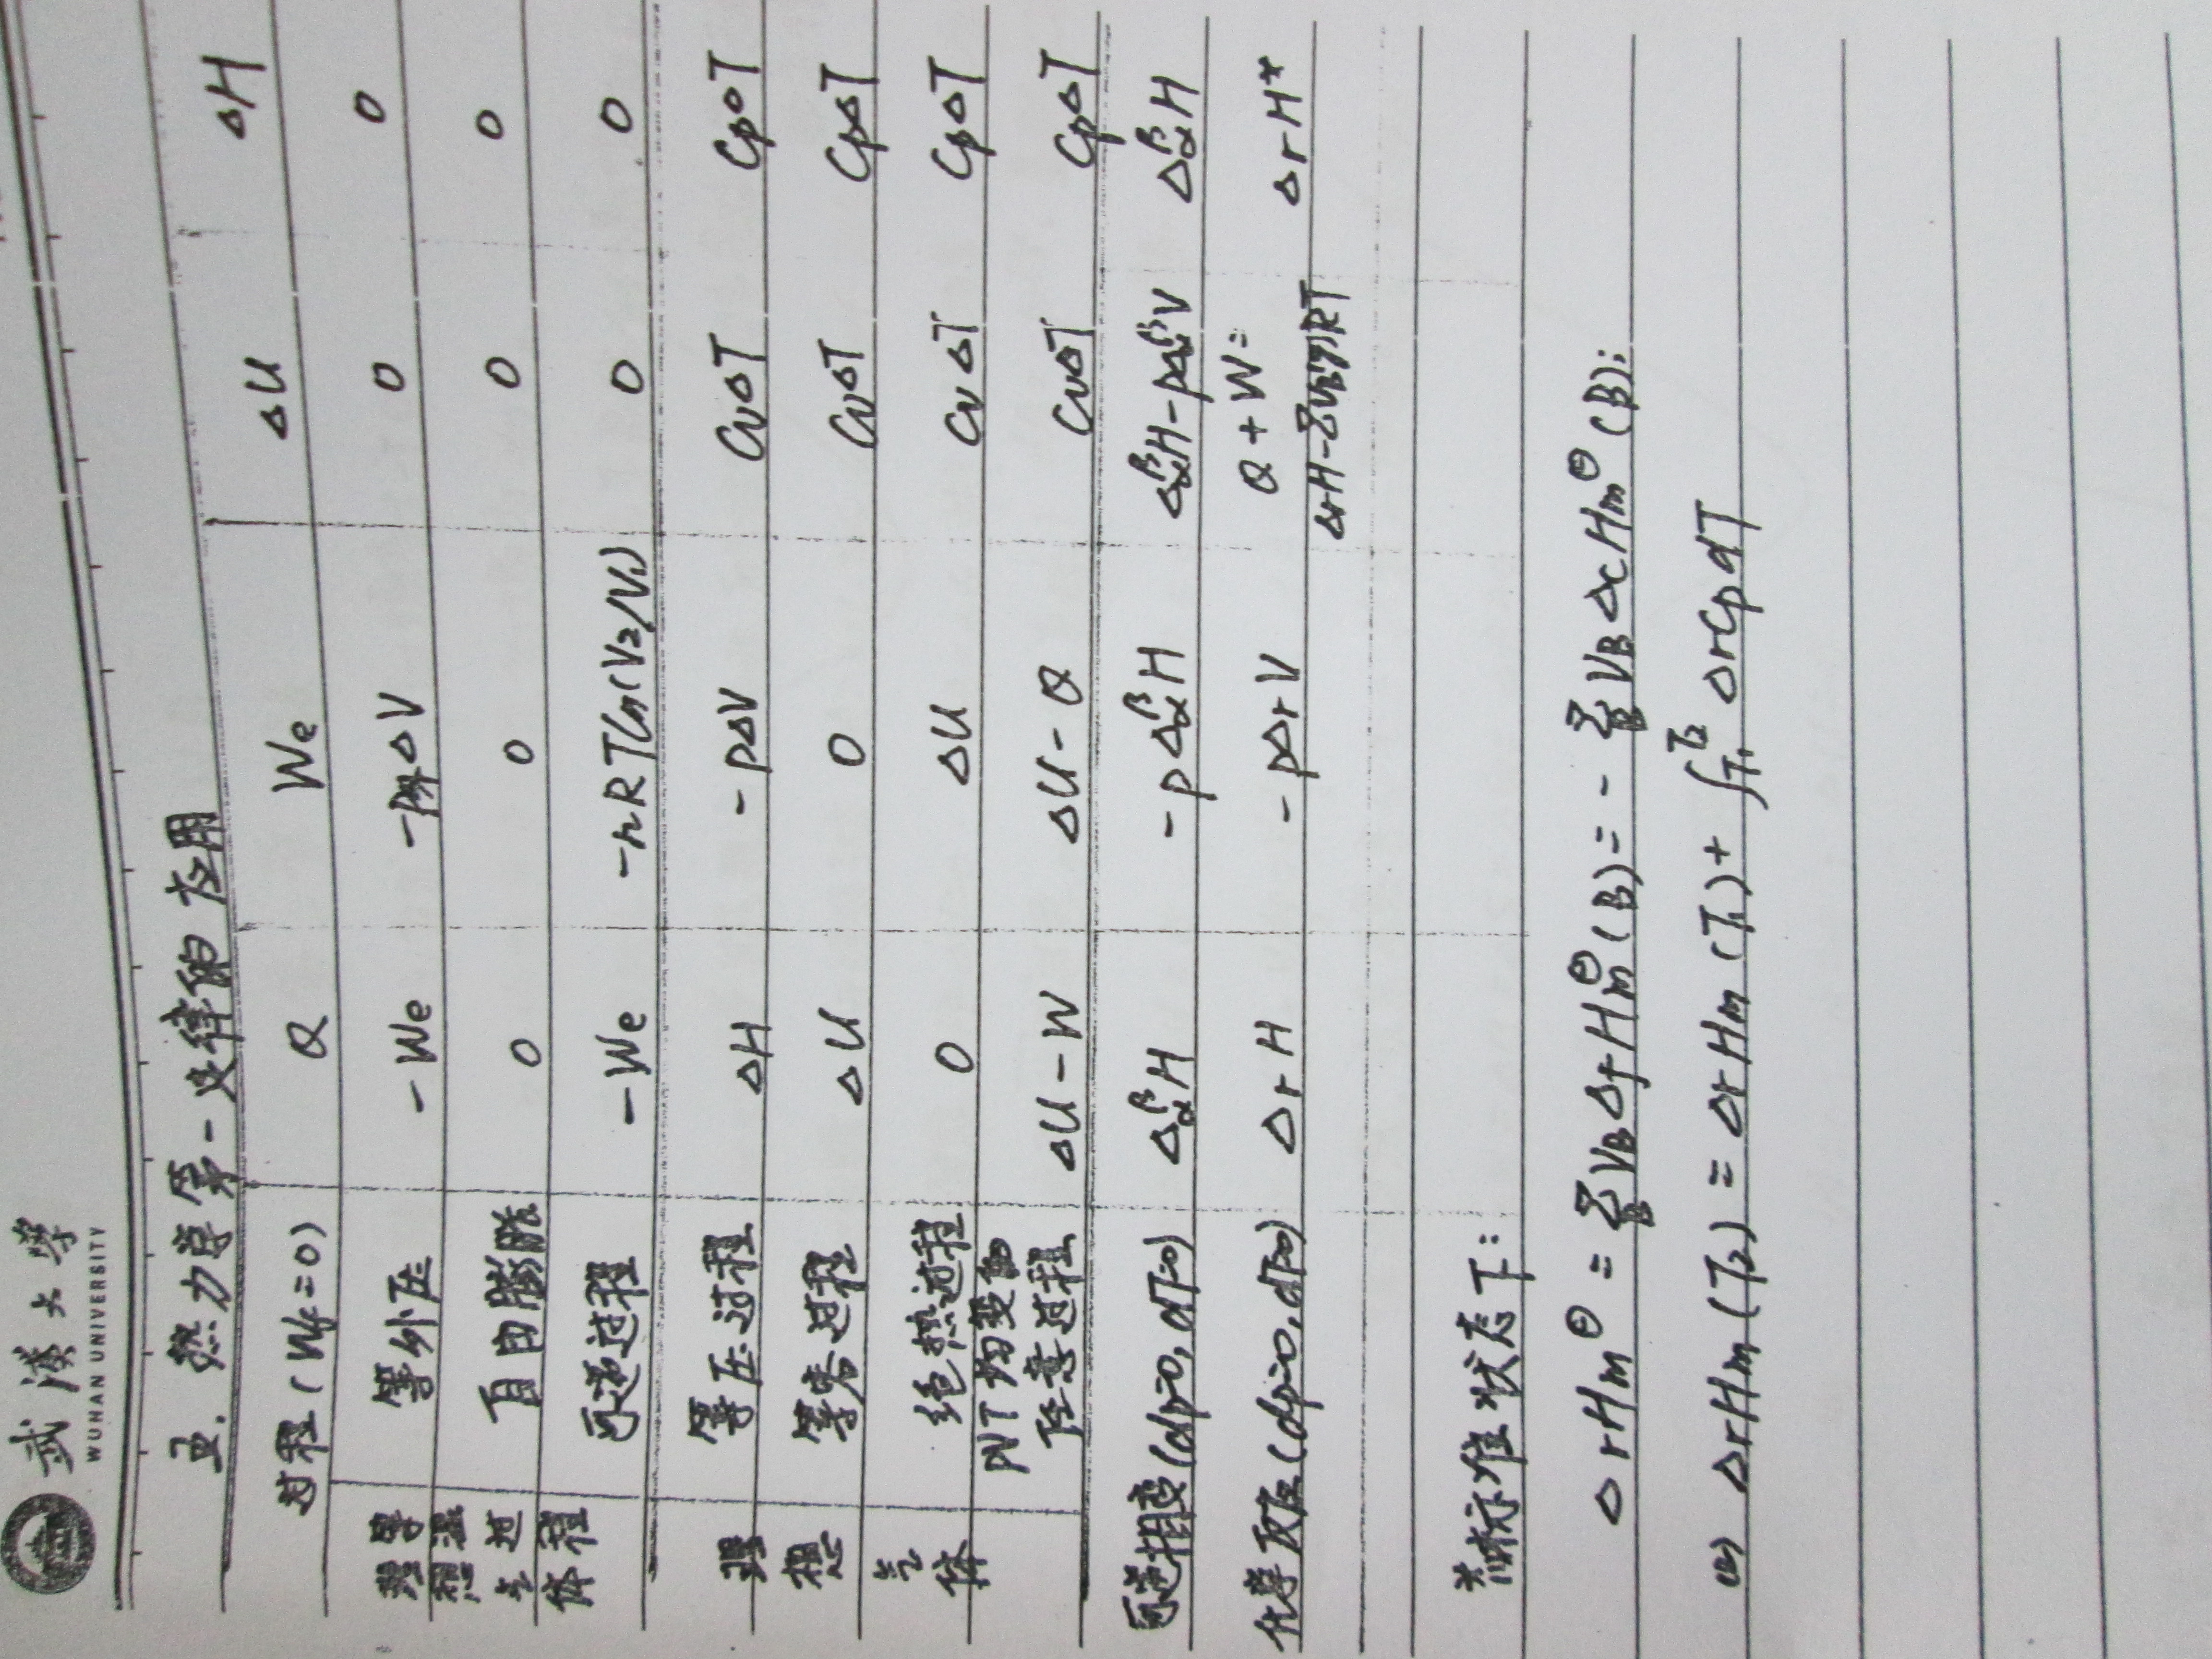 武漢大學
WUHAN UNIVERSITY
五. 热力学第一定律的应用
过程(Wf=0) Q We ΔU ΔH
理想气体 等温过程
等外压 -We -p外ΔV 0 0
自由膨胀 0 0 0 0
可逆过程 -We -nRTln(V2/V1) 0 0
理想气体
等压过程 ΔH -pΔV CvΔT CpΔT
等容过程 ΔU 0 CvΔT CpΔT
绝热过程 0 ΔU CvΔT CpΔT
PVT均变的
任意过程 ΔU-W ΔU-Q CvΔT CpΔT
可逆相变(dp=0, dT=0) Δ_α^βH -pΔ_α^βH Δ_α^βH-pΔ_α^βV Δ_α^βH
化学反应(dp=0, dT=0) ΔrH -pΔrV Q+W= ΔrH*
ΔrH-ΣνB(g)RT
标准状态下:
ΔrHm^⊖ = Σ_B νB ΔfHm^⊖(B) = -Σ_B νB ΔcHm^⊖(B);
(2) ΔrHm(T2) = ΔrHm(T1) + ∫_T1^T2 ΔrCp dT